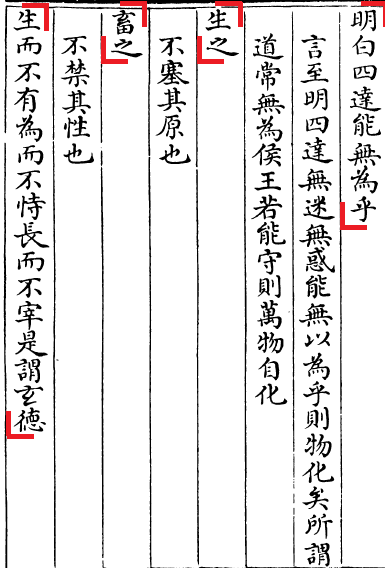 明白四達能無為乎
言至明四達無迷無惑能無以為乎則物化矣所謂
道常無為侯王若能守則萬物自化
生之
不塞其原也
畜之
不禁其性也
生而不有為而不恃長而不宰是謂玄德